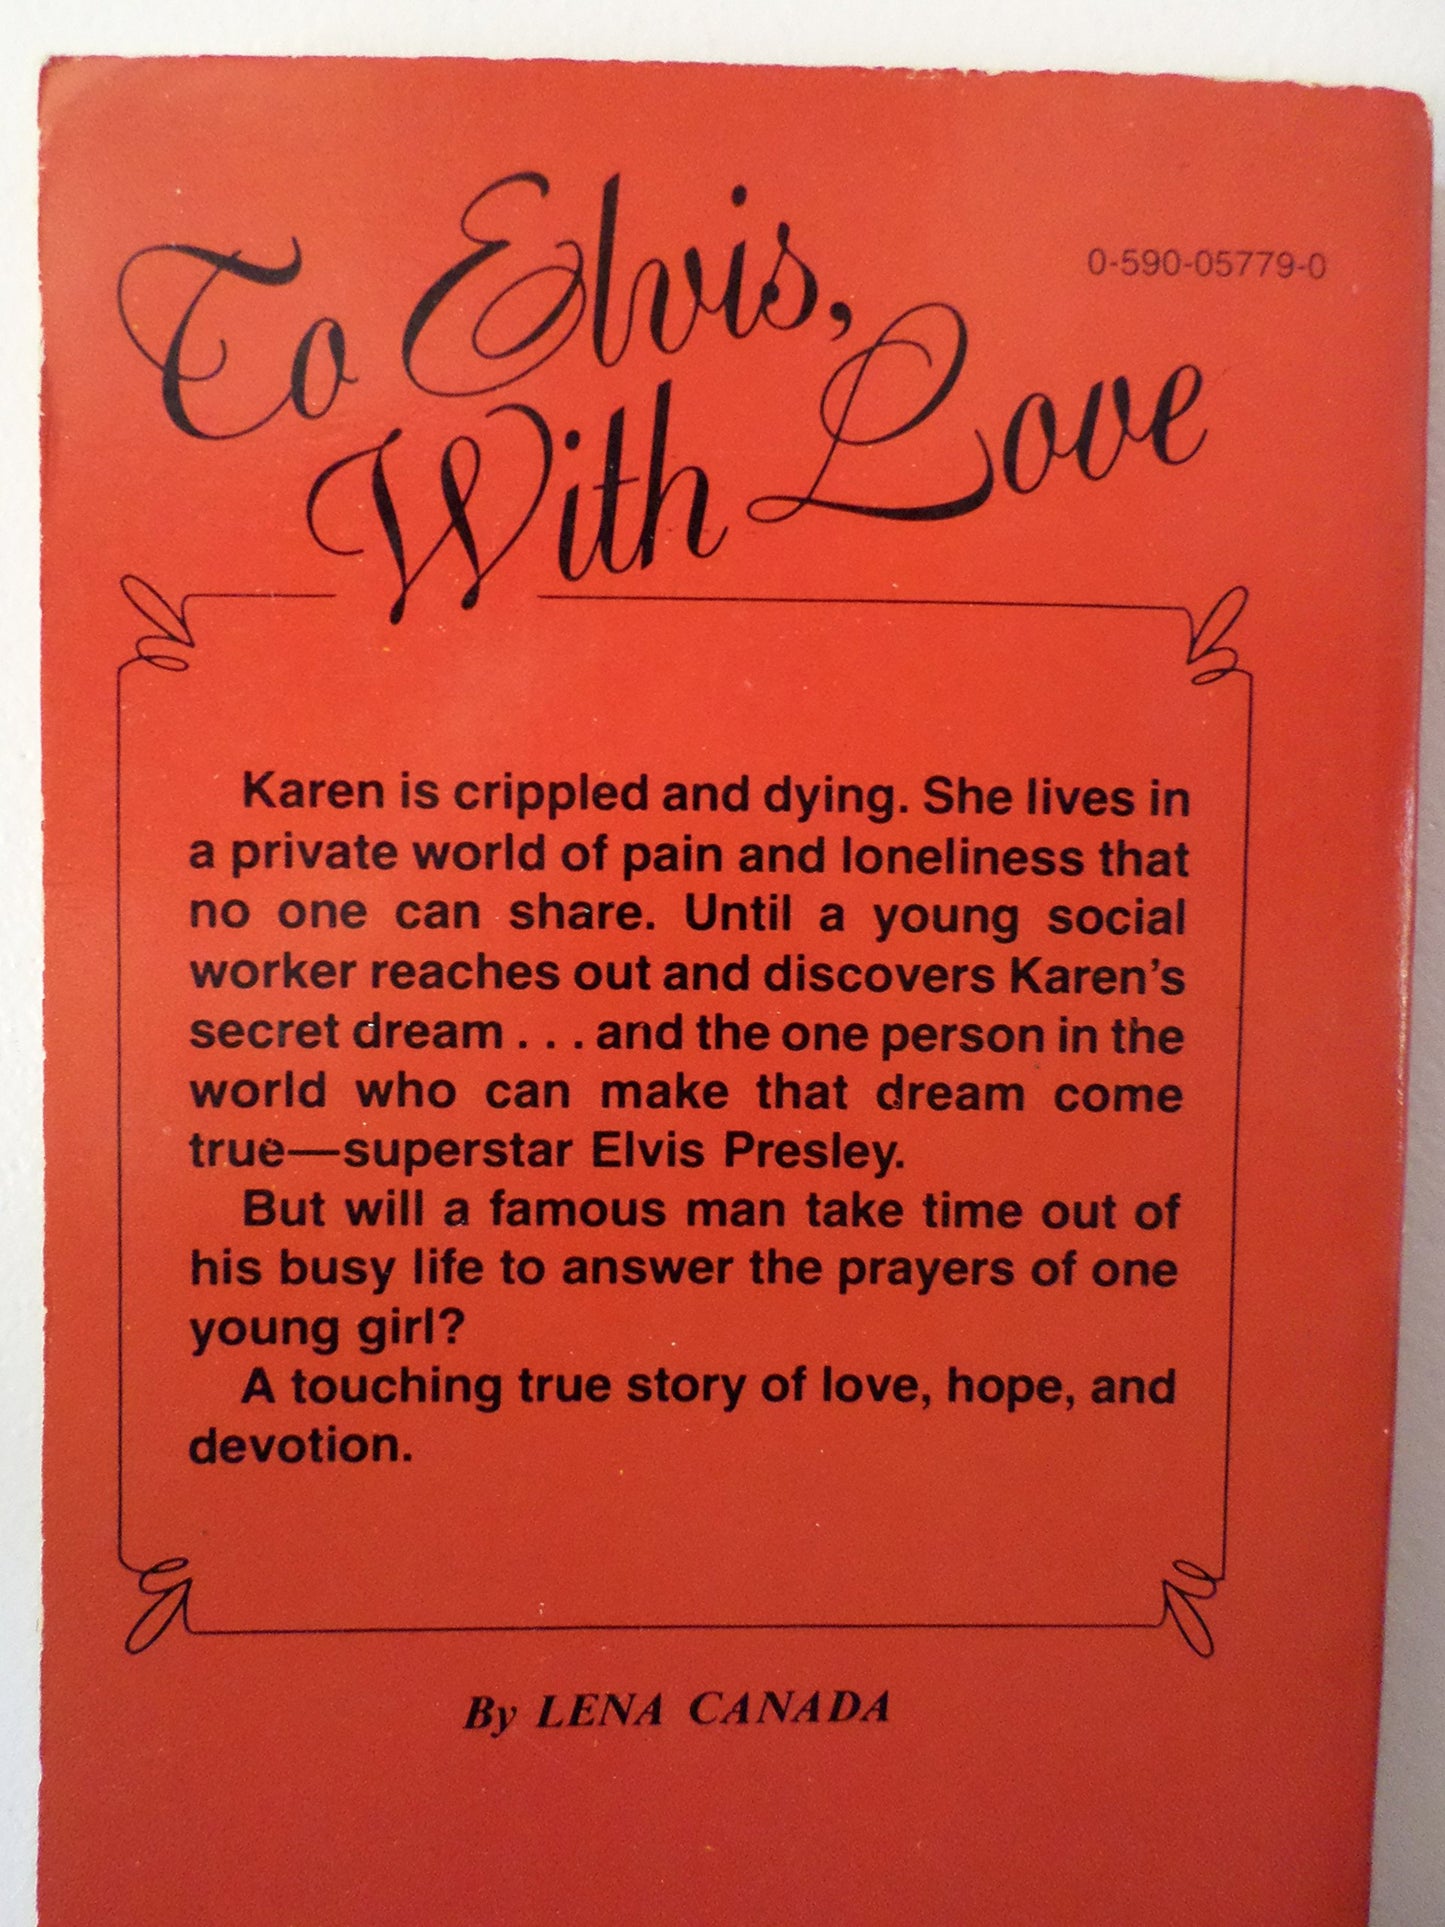 To Elvis,
0-590-05779-0
With Love
Karen is crippled and dying. She lives in
a private world of pain and loneliness that
no one can share. Until a young social
worker reaches out and discovers Karen's
secret dream . . . and the one person in the
world who can make that dream come
true—superstar Elvis Presley.
But will a famous man take time out of
his busy life to answer the prayers of one
young girl?
A touching true story of love, hope, and
devotion.
By LENA CANADA